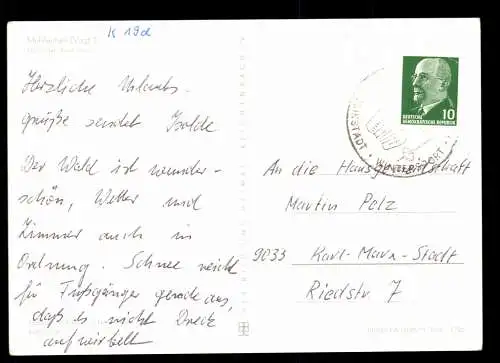 K 19d
Herzliche Urlaubs-
grüße sendet Isolde
Der Wald ist wunder-
schön, Wetter und
Zimmer auch in
Ordnung. Schnee reicht
für Fußgänger gerade aus,
daß es nicht Dreck
aufwirbelt
DEUTSCHE
DEMOKRATISCHE REPUBLIK
10
WINTERSPORT
An die Hausgemeinschaft
Martin Pelz
9033 Karl-Marx-Stadt
Riedstr. 7